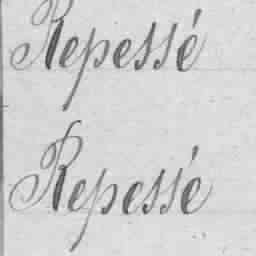 Repessé
Repessé